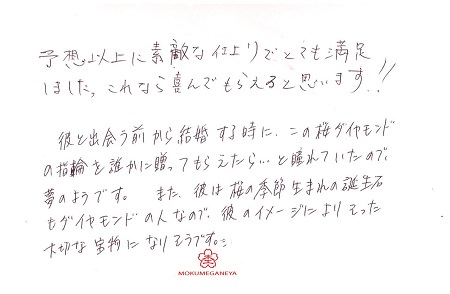 予想以上に素敵な仕上りでとても満足
しました。これなら喜んでもらえると思います!!
彼と出会う前から結婚する時に、この桜ダイヤモンド
の指輪を誰かに贈ってもらえたら…と憧れていたので、
夢のようです。 また、彼は桜の季節生まれの誕生石
もダイヤモンドの人なので、彼のイメージにより そった
大切な宝物になりそうです。
MOKUMEGANEYA